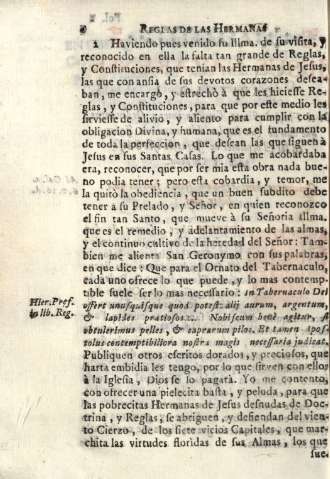 REGLAS DE LAS HERMANAS
2 Haviendo pues venido su Illma. de su visita, y
reconocido en ella la falta tan grande de Reglas,
y Constituciones, que tenian las Hermanas de Jesus,
las que con ansia de sus devotos corazones desea-
ban, me encargò, y estrechò à que les hiciesse Re-
glas, y Constituciones, para que por este medio les
sirviesse de alivio, y aliento para cumplir con la
obligacion Divina, y humana, que es el fundamento
de toda la perfeccion, que desean las que siguen à
Jesus en sus Santas Casas. Lo que me acobardaba
era, reconocer, que por ser mia esta obra nada bue-
no podia tener; pero esta cobardia, y temor, me
la quitò la obediencia, que un buen subdito debe
tener à su Prelado, y Señor, en quien reconozco
el fin tan Santo, que mueve à su Señoria Illma.
que es el remedio, y adelantamiento de las almas,
y el continuo cultivo de la heredad del Señor: Tam-
bien me alienta San Geronymo con sus palabras,
en que dice: Que para el Ornato del Tabernaculo,
cada uno ofrece lo que puede, y lo mas contemp-
tible suele ser lo mas necessario: in Tabernaculo Dei
Hier. Pref.
in lib. Reg.
offert unusquisque quod potest: alij aurum, argentum,
& lapides pratiosos... Nobiscum benè agitur, si
obtulerimus pelles, & caprarum pilos. Et tamen Apos-
tolus contemptibiliora nostra magis necessaria judicat.
Publiquen otros escritos dorados, y preciosos, que
harta embidia les tengo, por lo que sirven con ellos
à la Iglesia, Dios se lo pagarà. Yo me contento,
con ofrecer una pielecita basta, y peluda, para que
las pobrecitas Hermanas de Jesus desnudas de Doc-
trina, y Reglas, se abriguen, y defiendan del vien-
to Cierzo, de los siete vicios Capitales, que mar-
chita las virtudes floridas de sus Almas, los que
sue-